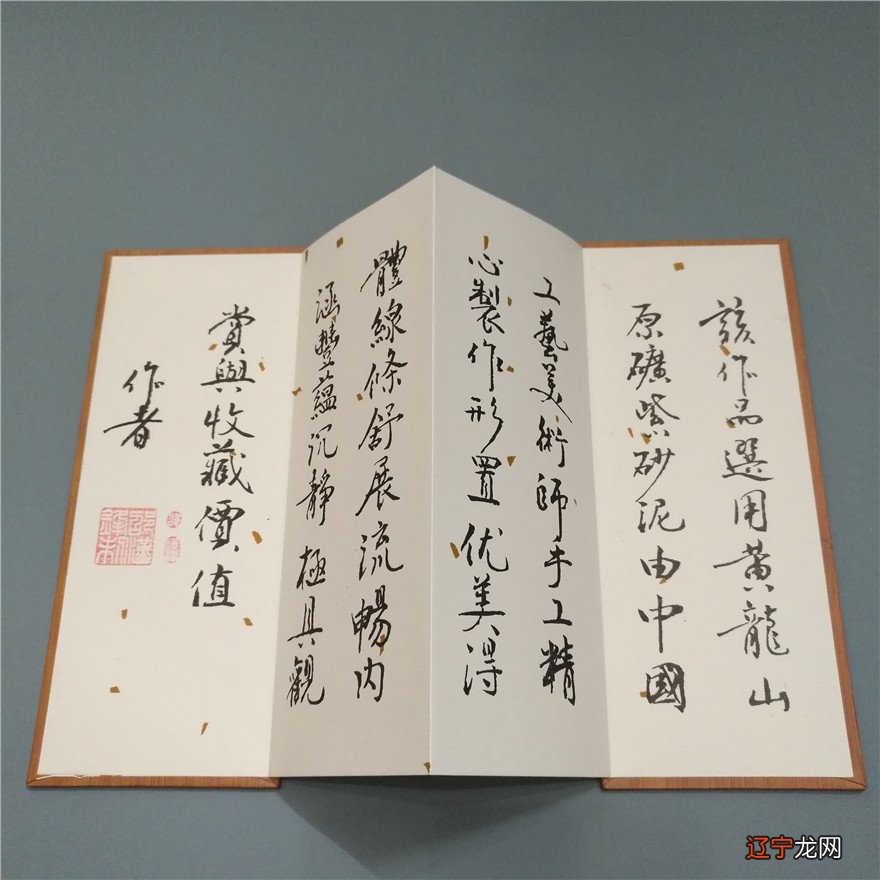 該作品選用黄龍山
原礦紫砂泥由中國
工藝美術師手工精
心製作形置优美得
體線條舒展流暢内
涵豐蘊沉靜極具觀
賞與收藏價值
作者
辽宁龙网